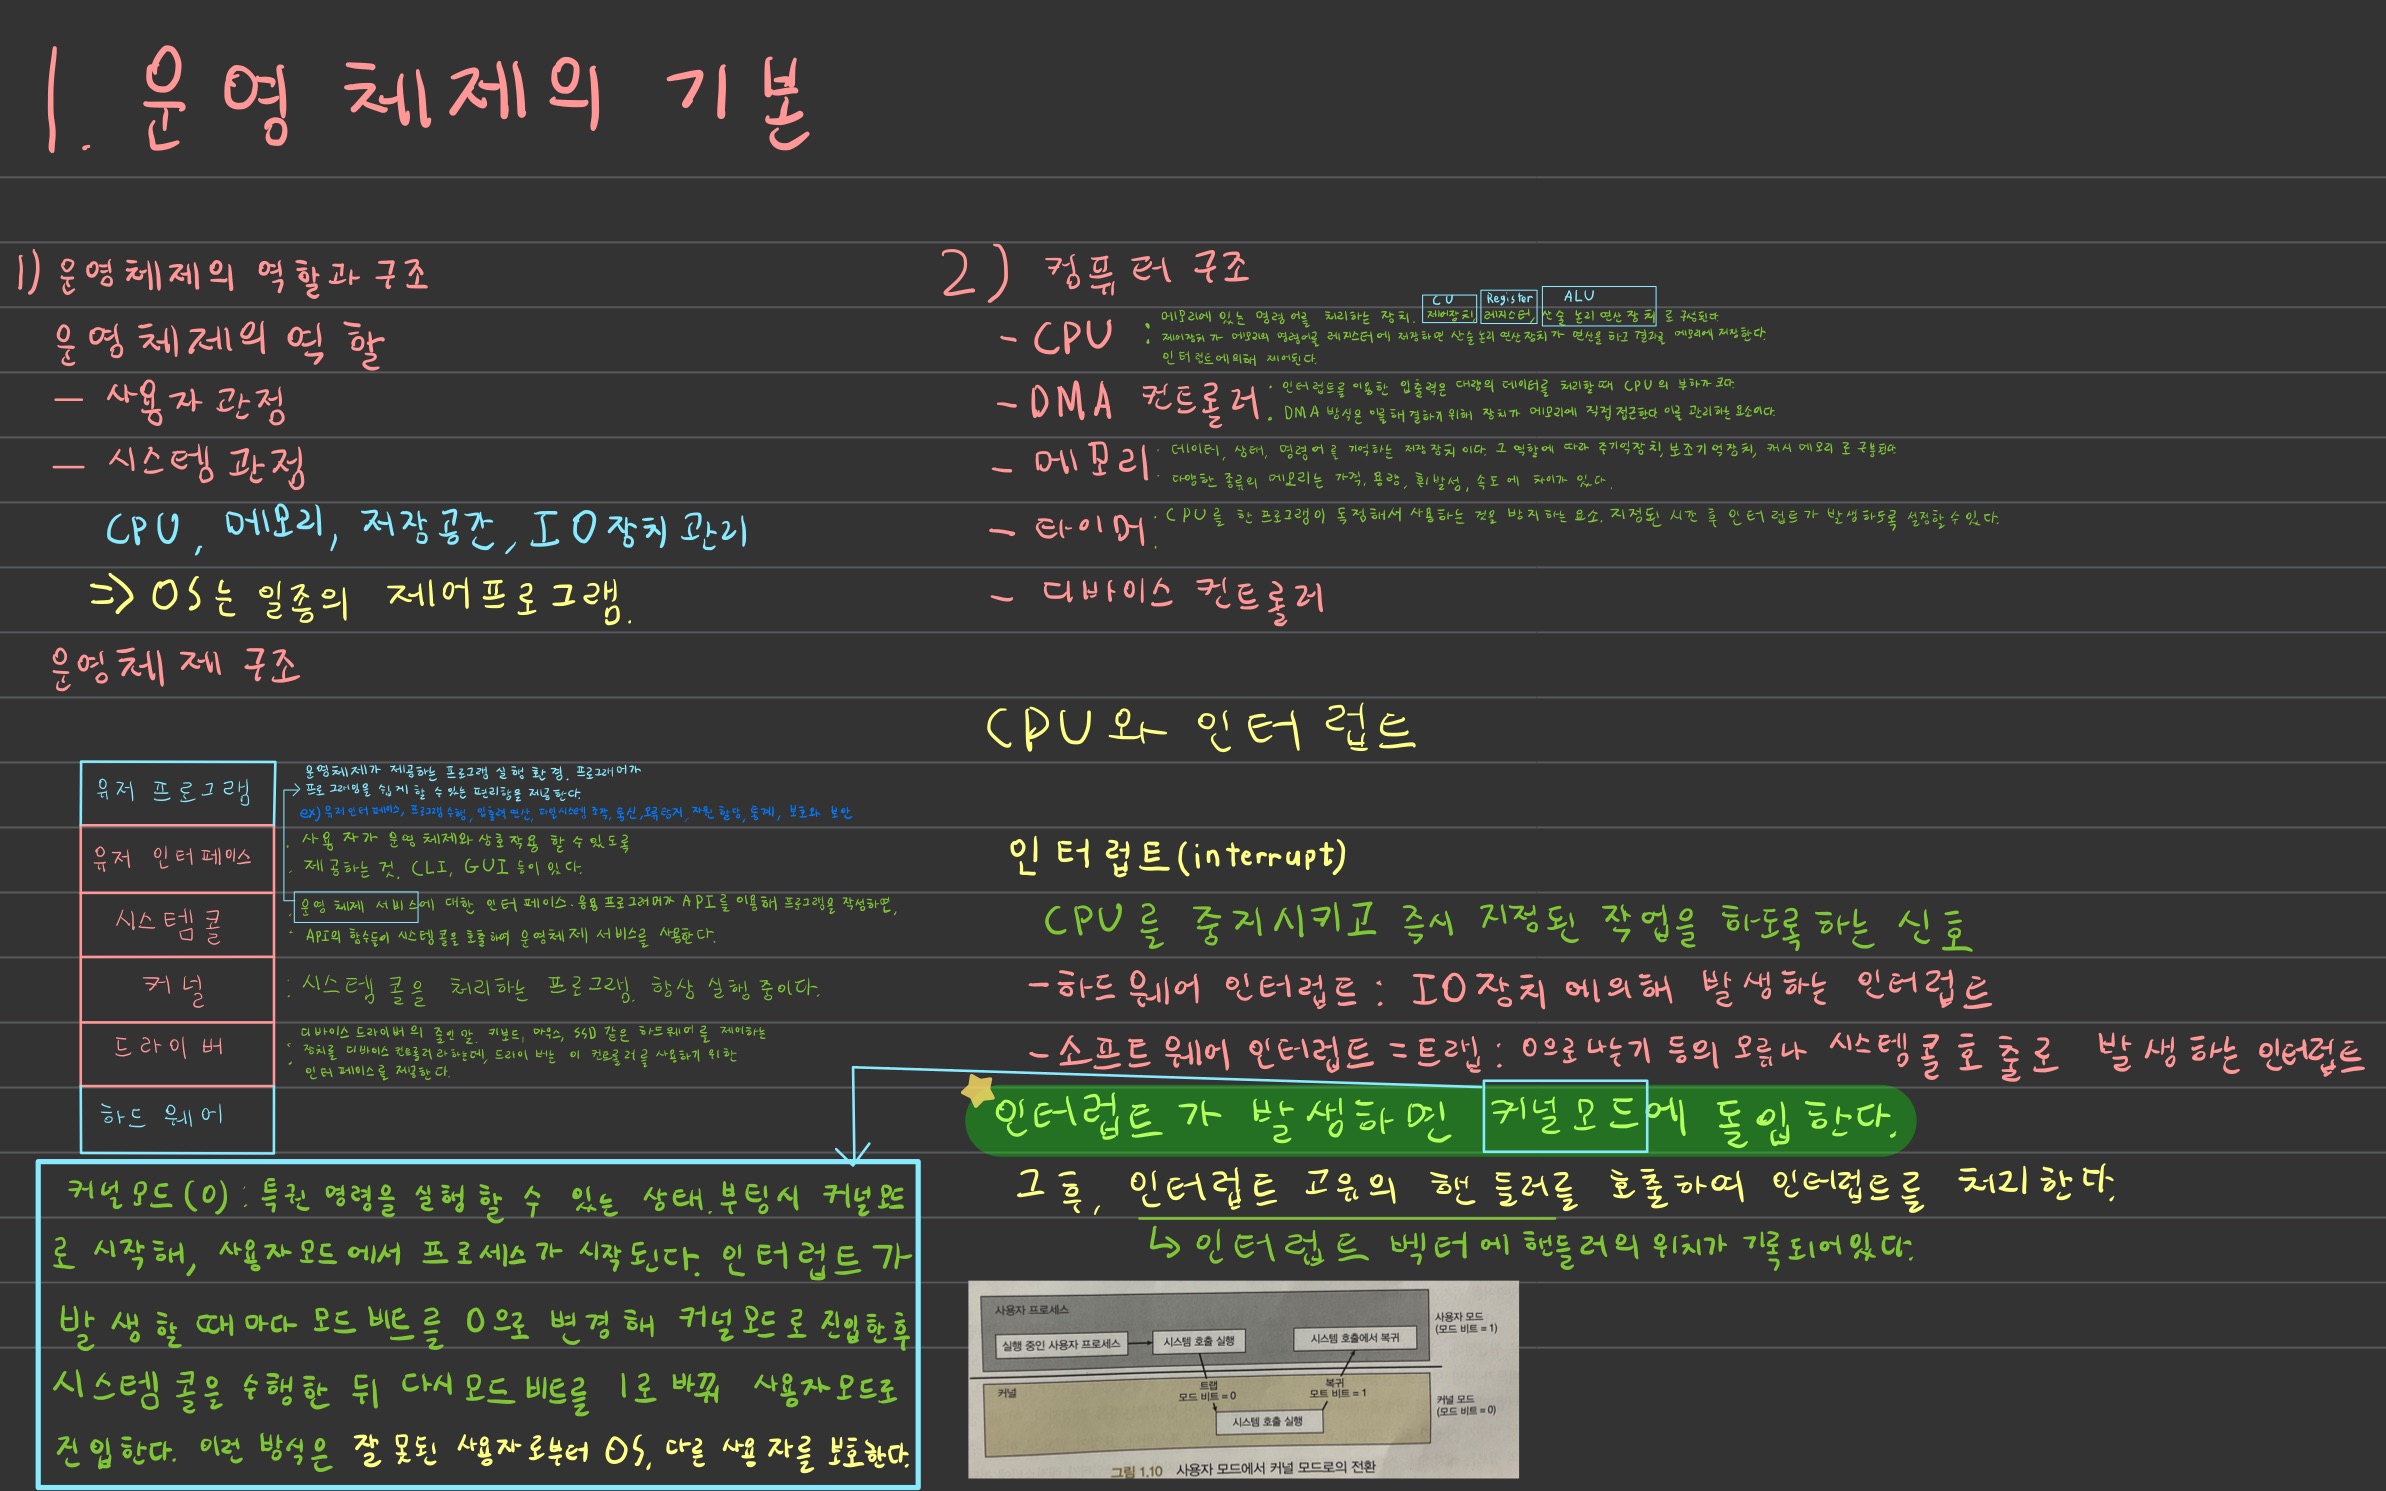 1. 운영체제의 기본
1) 운영체제의 역할과 구조
운영체제의 역할
- 사용자 관점
- 시스템 관점
CPU, 메모리, 저장공간, IO장치 관리
=> OS는 일종의 제어프로그램.
운영체제 구조
유저 프로그램
운영체제가 제공하는 프로그램 실행 환경. 프로그래머가
프로그래밍을 쉽게 할 수 있는 편리함을 제공한다.
ex) 유저인터페이스, 프로그램 수행, 입출력 연산, 파일시스템 조작, 통신, 오류탐지, 자원 할당, 통계, 보호와 보안
유저 인터페이스
: 사용자가 운영체제와 상호작용 할 수 있도록
제공하는 것. CLI, GUI 등이 있다.
시스템 콜
: 운영체제 서비스에 대한 인터페이스. 응용 프로그래머가 API를 이용해 프로그램을 작성하면,
API의 함수들이 시스템 콜을 호출하여 운영체제 서비스를 사용한다.
커널
: 시스템 콜을 처리하는 프로그램. 항상 실행 중이다.
드라이버
: 디바이스 드라이버의 줄인 말. 키보드, 마우스, SSD 같은 하드웨어를 제어하는
장치를 디바이스 컨트롤러라 하는데, 드라이버는 이 컨트롤러를 사용하기 위한
인터페이스를 제공한다.
하드웨어
커널모드(0) : 특권 명령을 실행 할 수 있는 상태. 부팅시 커널모드
로 시작해, 사용자모드에서 프로세스가 시작된다. 인터럽트가
발생할 때마다 모드 비트를 0으로 변경해 커널모드로 진입한 후
시스템 콜을 수행한 뒤 다시 모드 비트를 1로 바꿔 사용자모드로
진입한다. 이런 방식은 잘못된 사용자로부터 OS, 다른 사용자를 보호한다.
2) 컴퓨터 구조
CU Register ALU
- CPU : 메모리에 있는 명령어를 처리하는 장치. 제어장치, 레지스터, 산술 논리 연산 장치로 구성된다
제어장치가 메모리의 명령어를 레지스터에 저장하면 산술논리 연산장치가 연산을 하고 결과를 메모리에 저장한다.
인터럽트에 의해 제어된다.
- DMA 컨트롤러 : 인터럽트를 이용한 입출력은 대량의 데이터를 처리할 때 CPU의 부하가 크다.
DMA 방식은 이를 해결하기 위해 장치가 메모리에 직접 접근한다 이를 관리하는 요소이다.
- 메모리 : 데이터, 상태, 명령어를 기억하는 저장 장치이다. 그 역할에 따라 주기억장치, 보조기억장치, 캐시 메모리로 구분된다.
다양한 종류의 메모리는 가격, 용량, 휘발성, 속도에 차이가 있다.
- 타이머 : CPU를 한 프로그램이 독점해서 사용하는 것을 방지하는 요소. 지정된 시간 후 인터럽트가 발생하도록 설정할 수 있다.
- 디바이스 컨트롤러
CPU와 인터럽트
인터럽트(interrupt)
CPU를 중지시키고 즉시 지정된 작업을 하도록하는 신호
- 하드웨어 인터럽트 : IO장치에 의해 발생하는 인터럽트
- 소프트웨어 인터럽트 = 트랩 : 0으로 나누기 등의 오류나 시스템콜 호출로 발생하는 인터럽트
인터럽트가 발생하면 커널모드에 돌입한다.
그 후, 인터럽트 고유의 핸들러를 호출하여 인터럽트를 처리한다.
↳ 인터럽트 벡터에 핸들러의 위치가 기록되어있다.
사용자 프로세스
실행 중인 사용자 프로세스
시스템 호출 실행
시스템 호출에서 복귀
사용자 모드
(모드 비트 = 1)
커널
트랩
모드 비트 = 0
복귀
모트 비트 = 1
시스템 호출 실행
커널 모드
(모드 비트 = 0)
그림 1.10 사용자 모드에서 커널 모드로의 전환